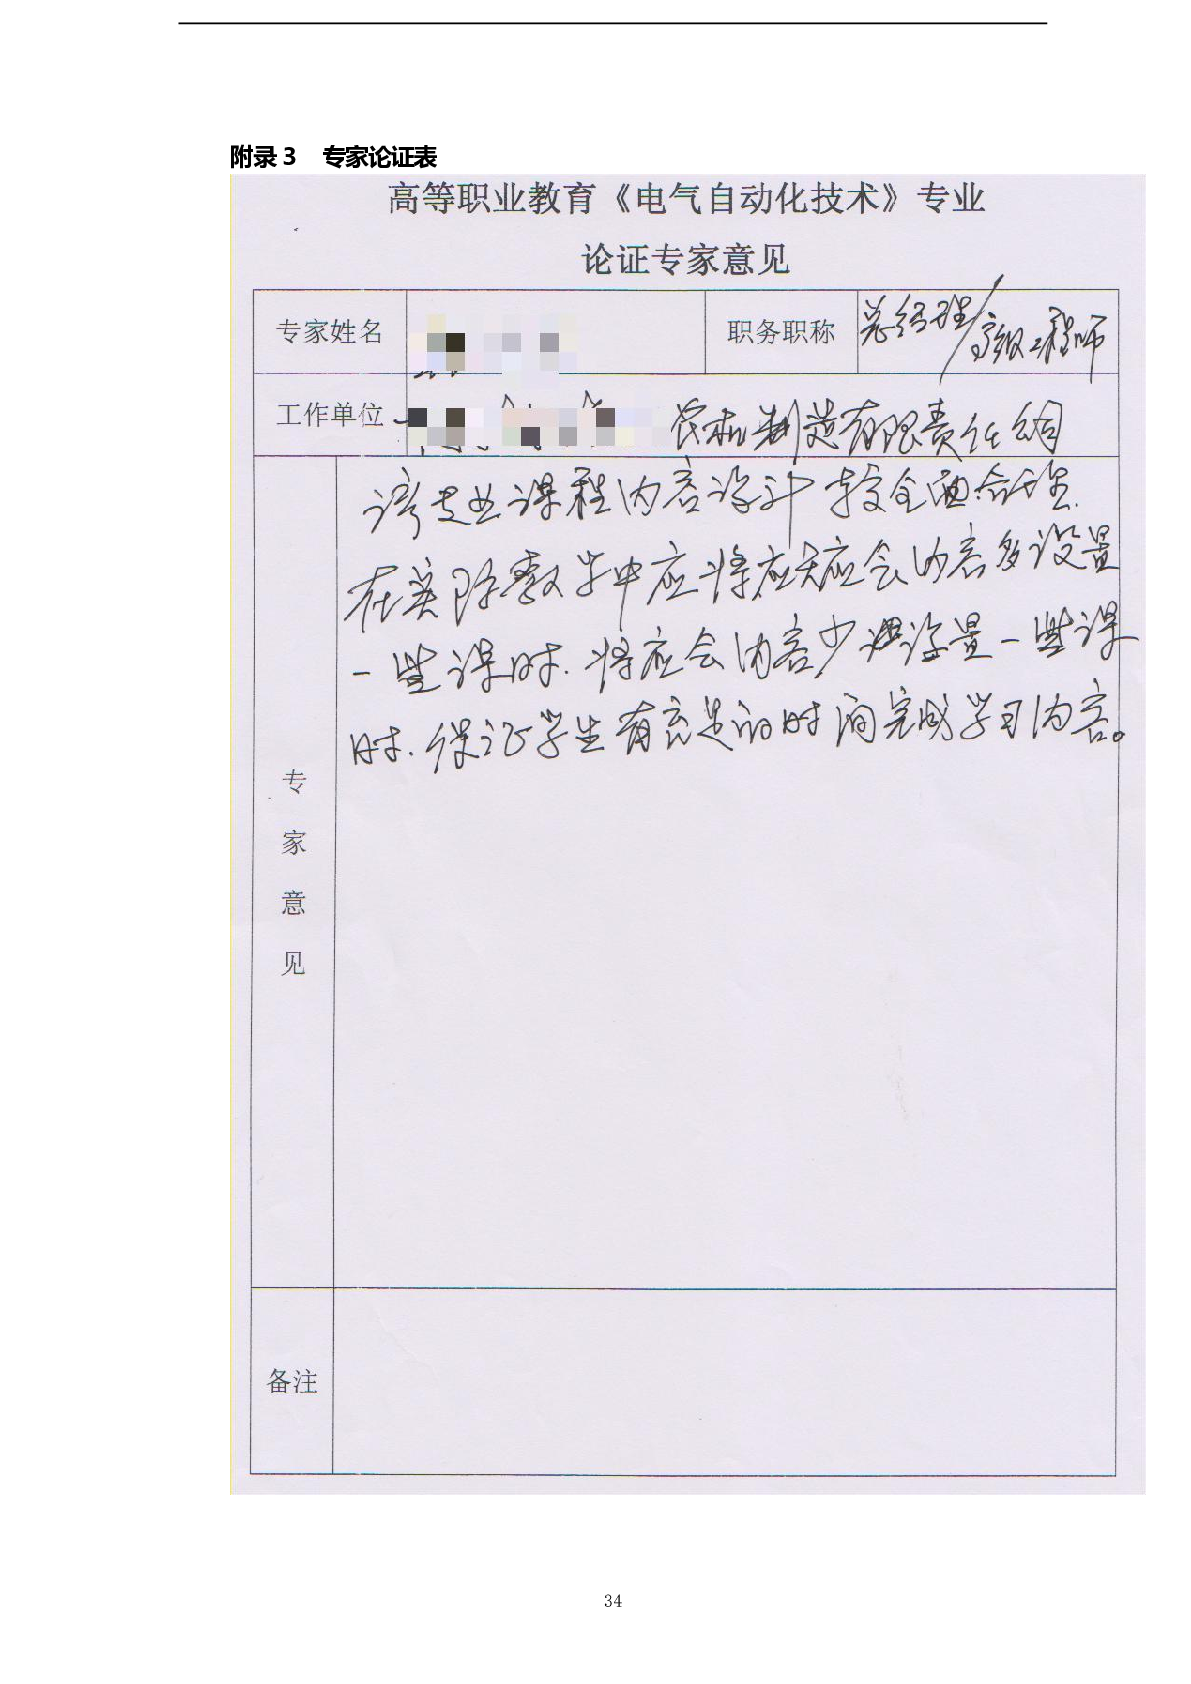 附录 3 专家论证表
高等职业教育《电气自动化技术》专业
论证专家意见
专家姓名
职务职称 总经理/高级工程师
工作单位 农机制造有限责任公司
该专业课程内容设计较全面合理.
在实际教学中应将应知应会内容多设置
一些课时.将应会内容少设置一些课
时.保证学生有充足的时间完成学习内容。
专家意见
备注
34